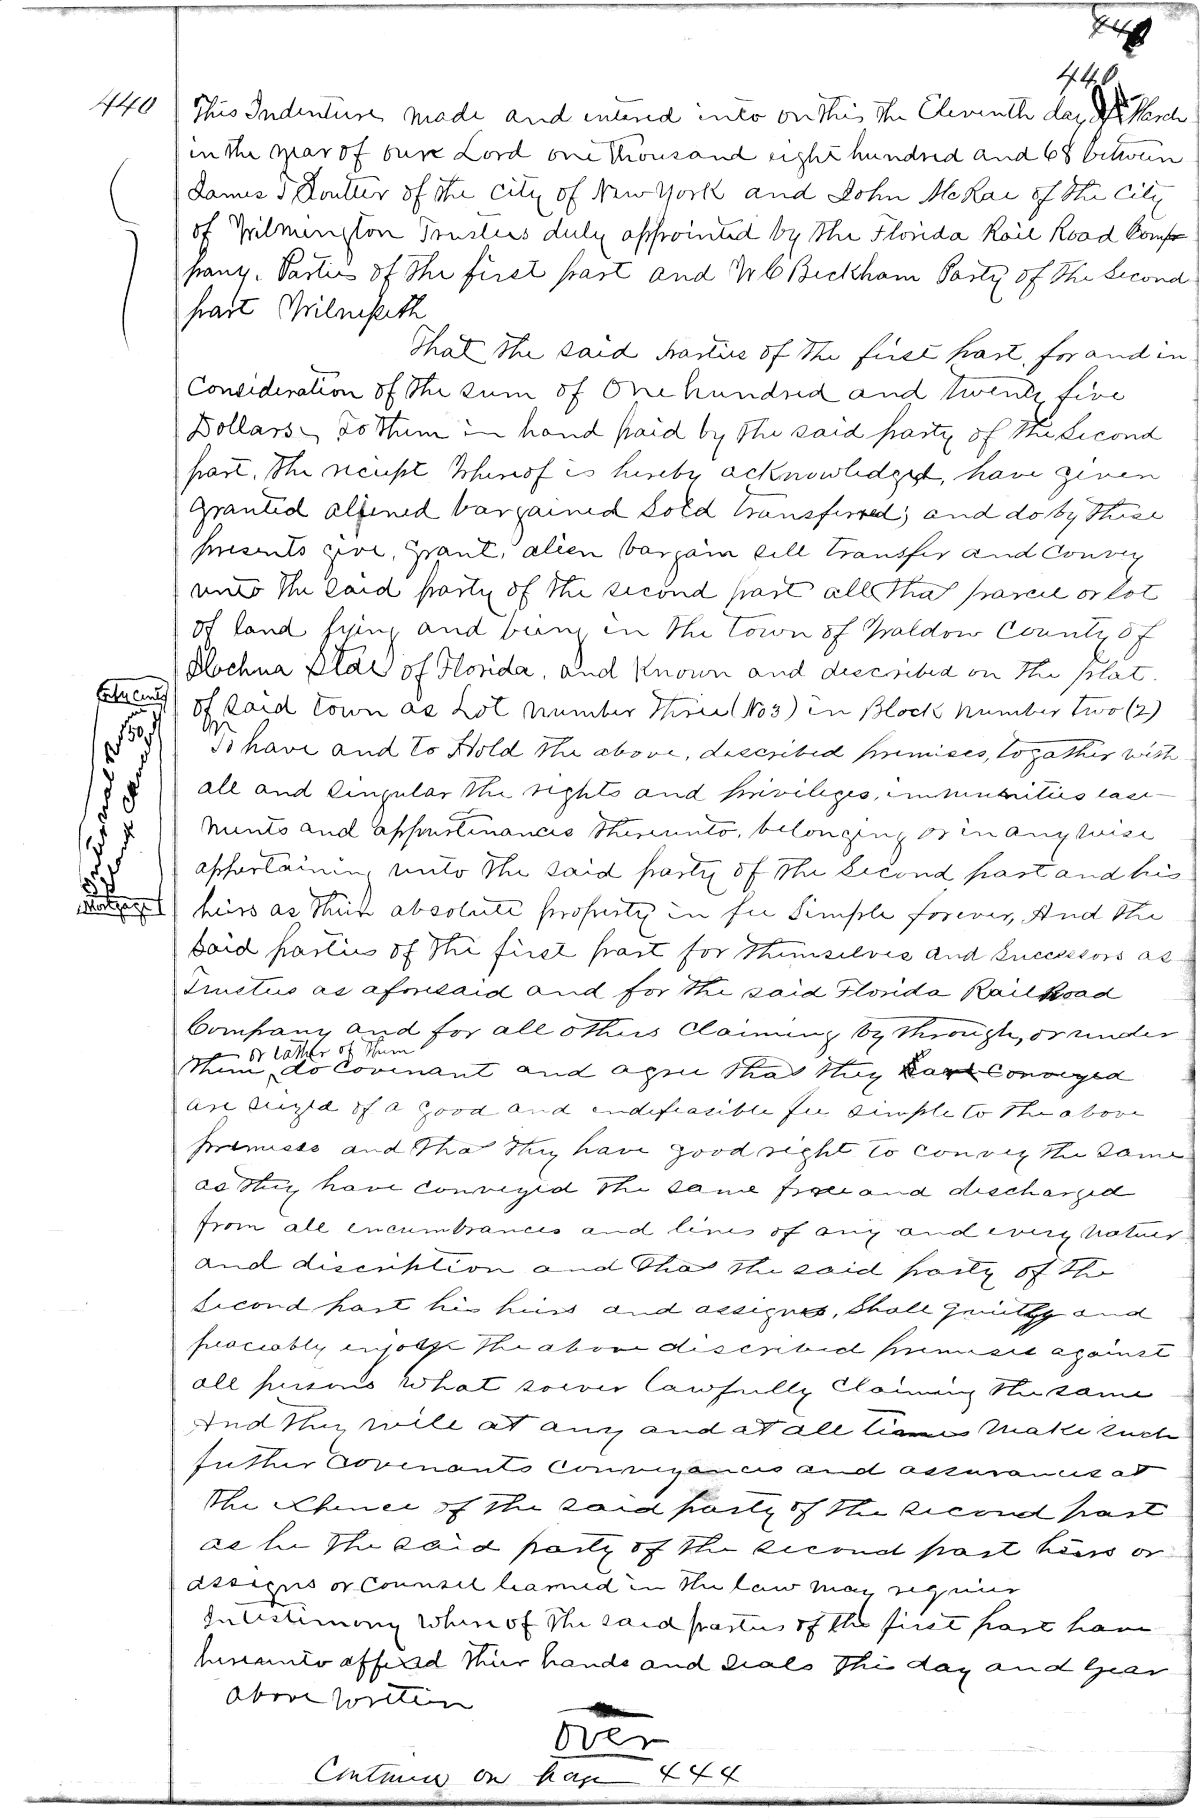 440
440
This Indenture made and entered into on this the Eleventh day of March
in the year of our Lord one thousand eight hundred and 68 between
James T Soutter of the city of New York and John McRae of the City
of Wilmington Trustees duly appointed by the Florida Rail Road Com
pany. Parties of the first part and W C Beckham Party of the Second
part Wilnesseth
That the said parties of the first part, for and in
Consideration of the sum of One hundred and twenty five
Dollars, To them in hand paid by the said party of the Second
part, the reciept Whereof is hereby acknowledged, have given
granted aliened bargained Sold transferred; and do by these
presents give, grant, alien bargain sell transfer and Convey
unto the said party of the second part all that parcel or lot
of land lying and being in the town of Waldow County of
Alochua State of Florida, and Known and described on the plat.
of said town as Lot number three (No 3) in Block number two (2)
To have and to Hold the above, described premises, togather with
all and singular the rights and privileges, immunities ease-
ments and appurtinances thereunto, belonging or in any wise
appertaining unto the said party of the Second part and his
heirs as their absolute property in fee Simple forever, And the
Said parties of the first part for themselves and Successors as
Trustees as aforesaid and for the said Florida Rail Road
Company and for all others claiming by through, or under
or eather of them
them, do Covenant and agree that they have conveyed
are seized of a good and endefeasible fee simple to the above
premises and that they have good right to convey the same
as they have conveyed the same free and discharged
from all encumbrances and liens of any and every natuer
and discription and that the said party of the
Second part his heirs and assigns, Shall quietly and
peaceably enjoy the above discribed premises against
all persons what soever lawfully claiming the same
And they will at any and at all times make such
futher covenants conveyances and assurances at
the expence of the said party of the second part
as he the said party of the second part heirs or
assigns or counsel learned in the law may requier
In testimony where of the said parties of the first part have
hereunto affixed thier hands and seals this day and year
above written
over
Continued on page 444
fifty cents
Internal Revenue
50
Stamp Canceled
Mortgage